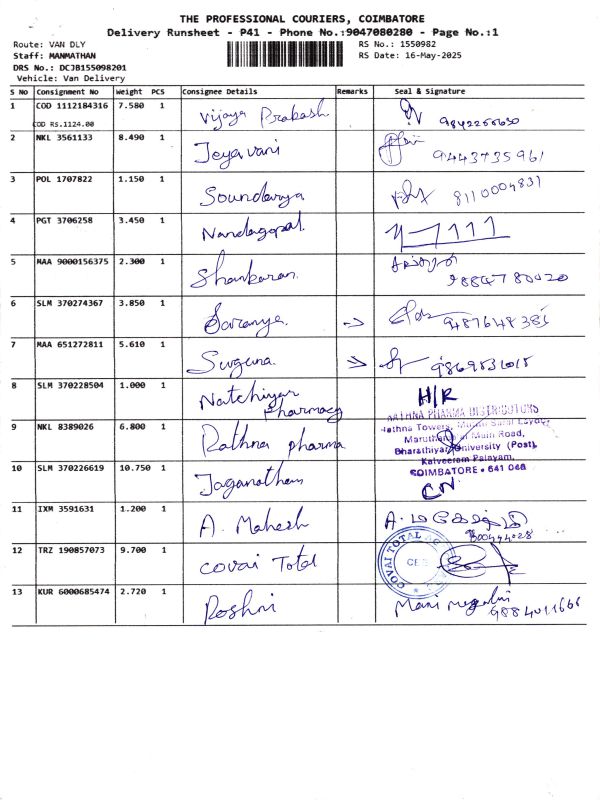 THE PROFESSIONAL COURIERS, COIMBATORE
Delivery Runsheet - P41 - Phone No.:9047080280 - Page No.:1
Route: VAN DLY RS No.: 1550982
Staff: MANMATHAN RS Date: 16-May-2025
DRS No.: DCJB155098201
Vehicle: Van Delivery
S No Consignment No Weight PCS Consignee Details Remarks Seal & Signature
1 COD 1112184316 7.580 1 Vijaya Prakash
COD RS.1124.00
2 NKL 3561133 8.490 1 Jeyavani 9443735961
3 POL 1707822 1.150 1 Soundarya 8110004831
4 PGT 3706258 3.450 1 Nandagopal
5 MAA 9000156375 2.300 1 Shankaran
9884780020
6 SLM 370274367 3.850 1 Saranya
7 MAA 651272811 5.610 1 Suguna
8 SLM 370228504 1.000 1 Natchiyar H/R
Pharmacy
RATHNA PHARMA DISTRIBUTORS
9 NKL 8389026 6.800 1 Rathna pharma
Rathna Towers,
Main Road,
Bharathiyar University (Post),
Kalveeram Palayam,
COIMBATORE 641 046
10 SLM 370226619 10.750 1 Jaganatham CN
11 IXM 3591631 1.200 1 A. Mahesh A. மகேஷ்
12 TRZ 190857073 9.700 1 Covai Total COVAI TOTAL
13 KUR 6000685474 2.720 1 Roshni
9884011666